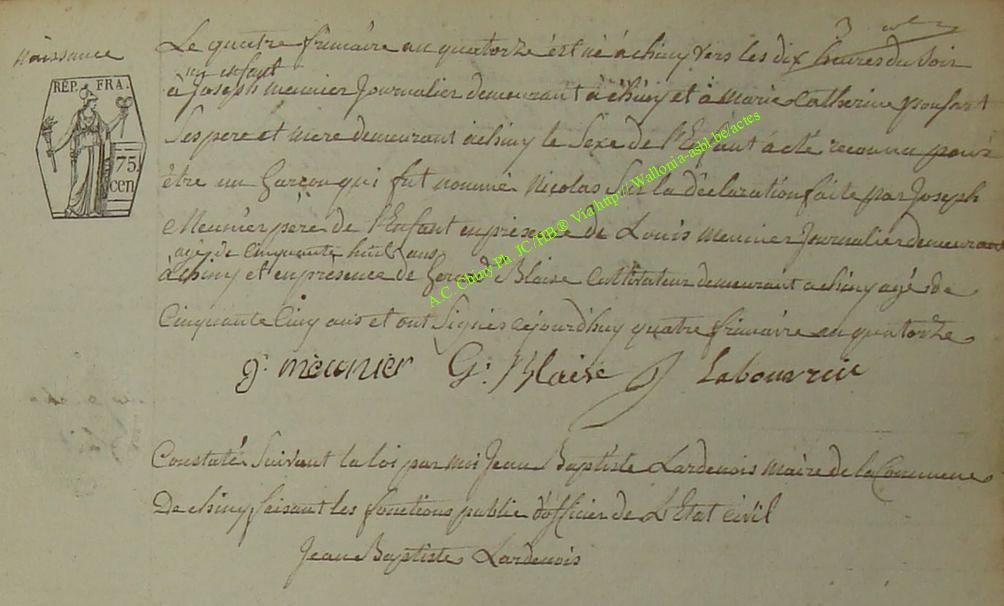 naissance
RÉP. FRA.
75
cen
Le quatre frimaire an quatorze est né à chiny vers les dix heures du soir
un enfant
à Joseph meunier Journalier demeurant à chiny et à marie Catherine ponsart
Ses pere et mere demeurant à chiny le Sexe de l'Enfant à été reconnu pour
être un Garçon qui fut nommé Nicolas Sur la déclaration faite par Joseph
Meunier père de l'Enfant en présence de Louis meunier Journalier demeurant
agé de Cinquante huit ans
à chiny et en presence de Gerard Blaise Cultivateur demeurant a chiny agés de
Cinquante Cinq ans et ont Signés cejourd'huy quatre frimaire an quatorze
J. meunier G: Blaise
Constaté Suivant la loi par moi Jean Baptiste Lardenois maire de la Commune
De chiny faisant les fonctions public d'officier de L'Etat civil
Jean Baptiste Lardenois
A.C. Chiny Ph JC/HB® Via http://Wallonia-asbl.be/actes